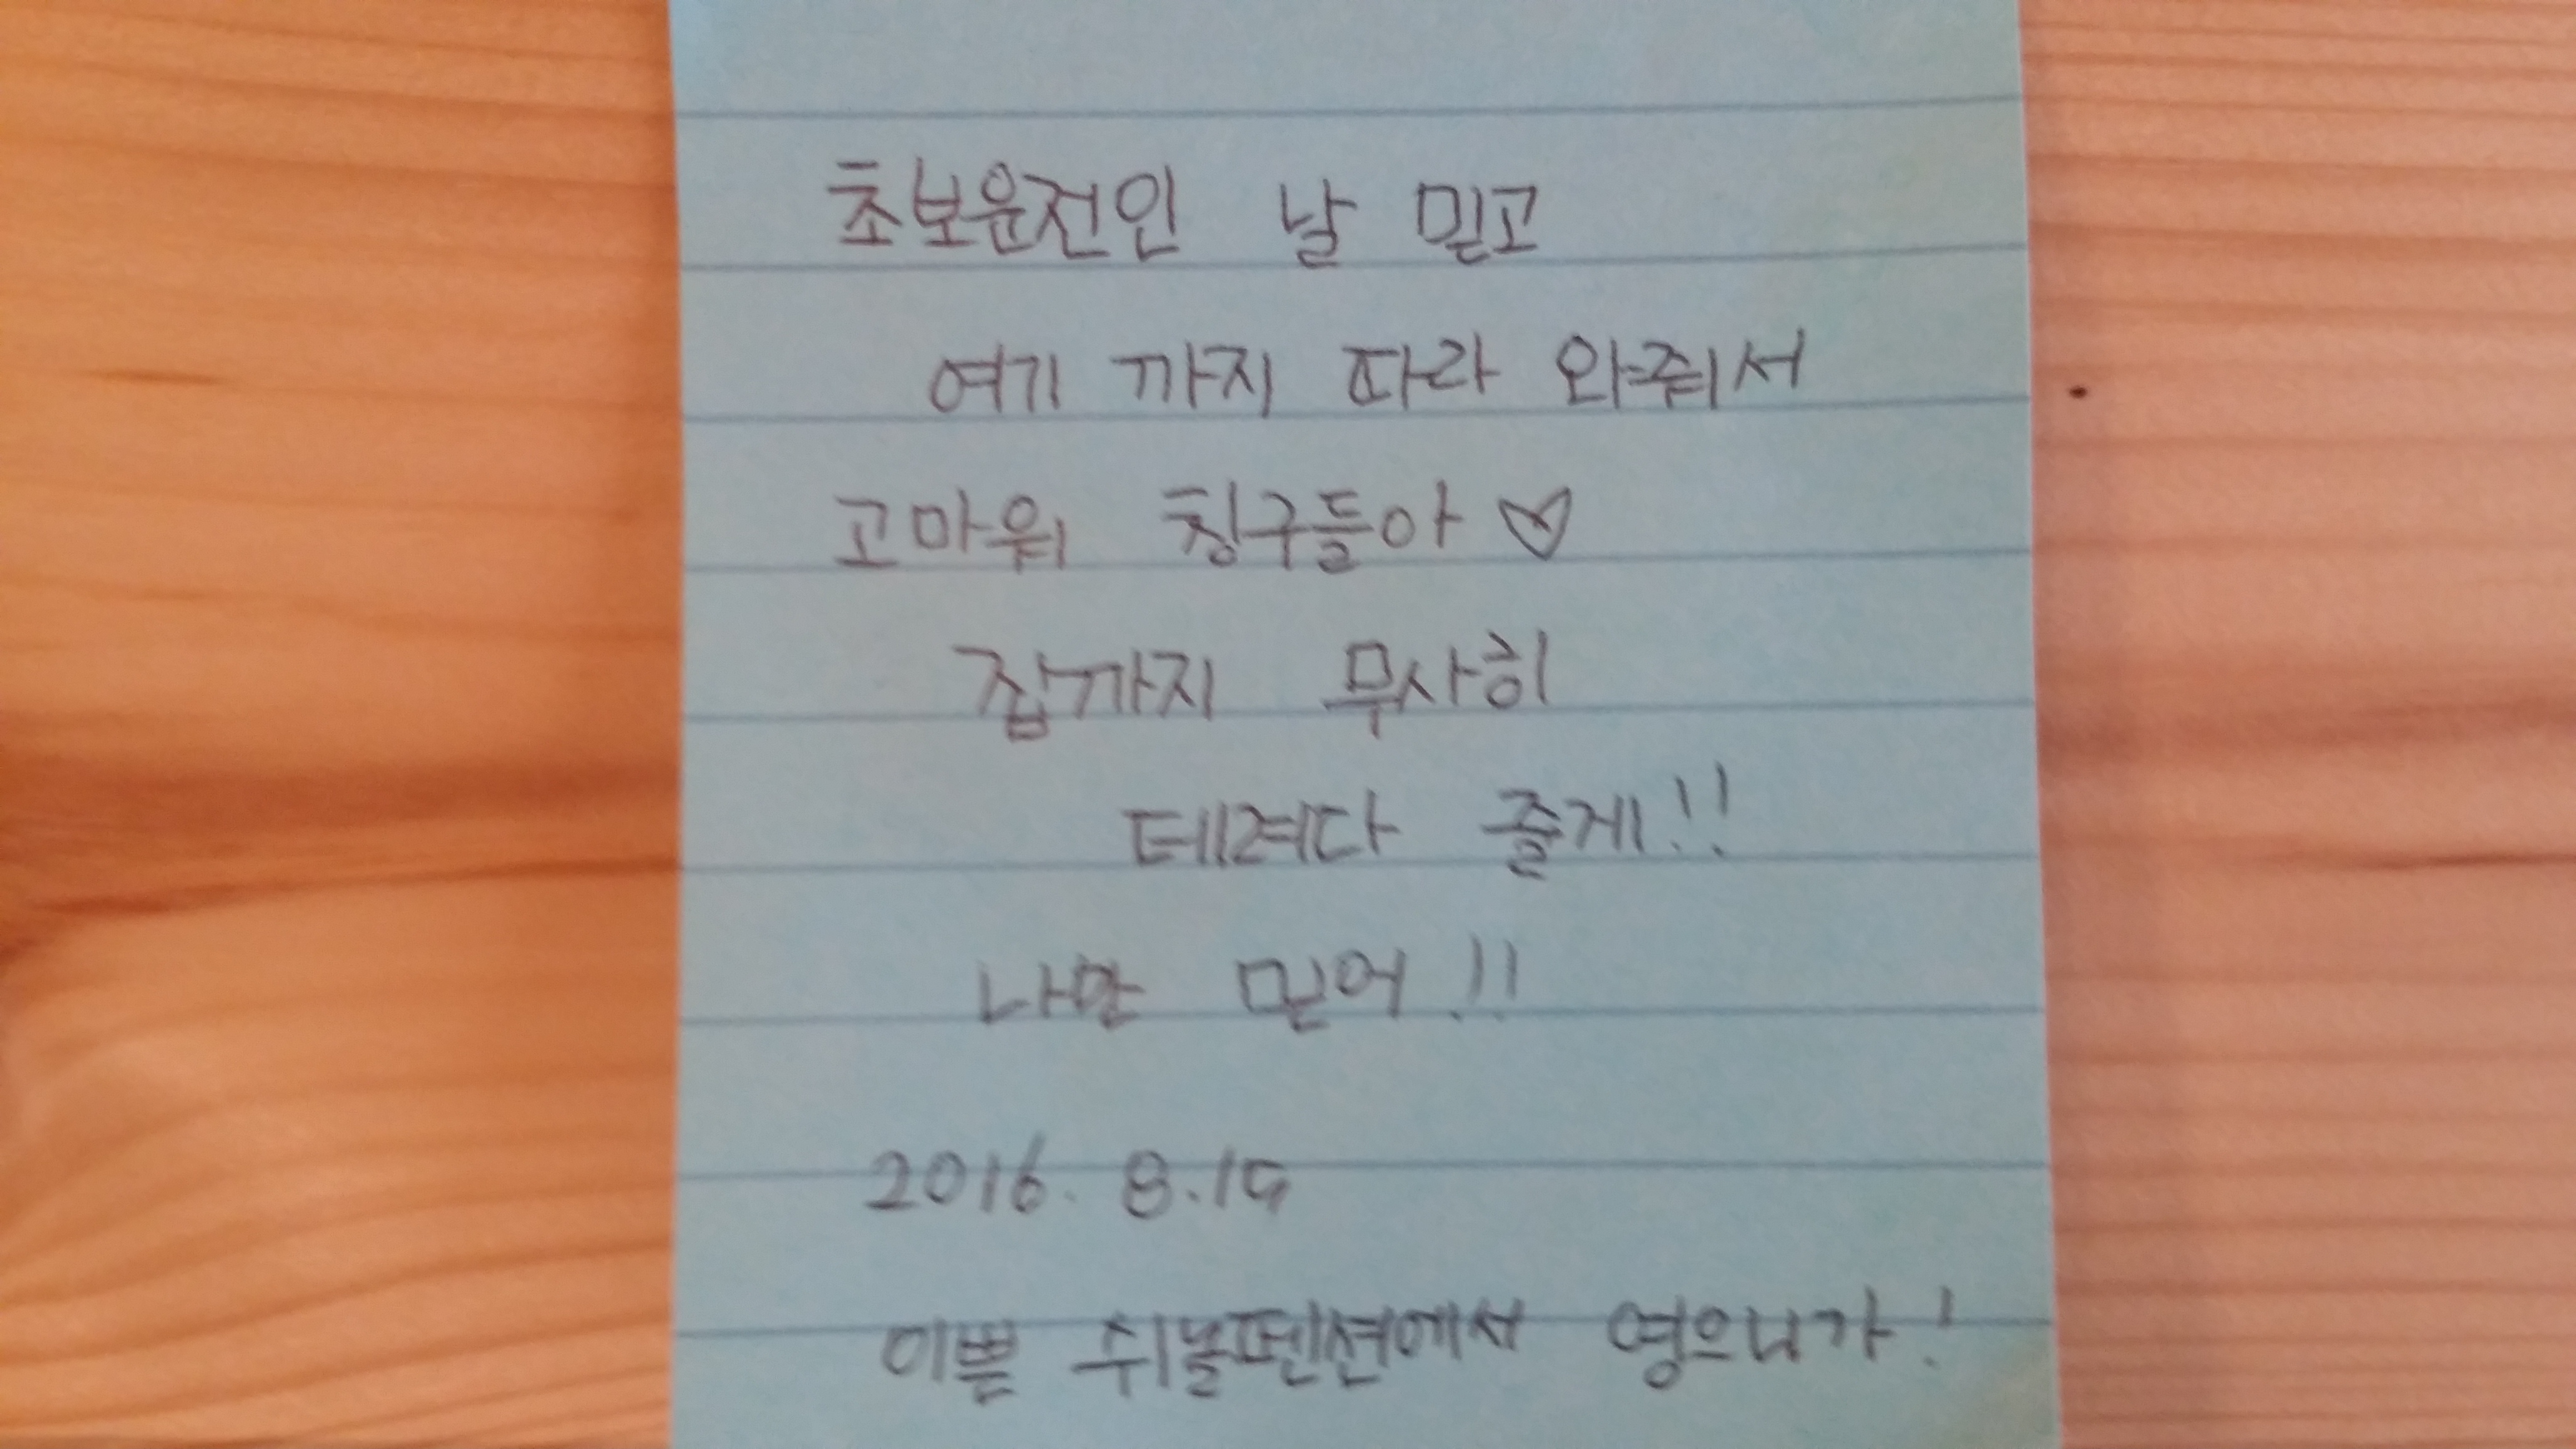 초보운전인 날 믿고
여기 까지 따라 와줘서
고마워 칭구들아♡
집까지 무사히
테려다 줄게!!
나만 믿어!!
2016. 8.19
이쁜 쉬넬펜션에서 영으니가!